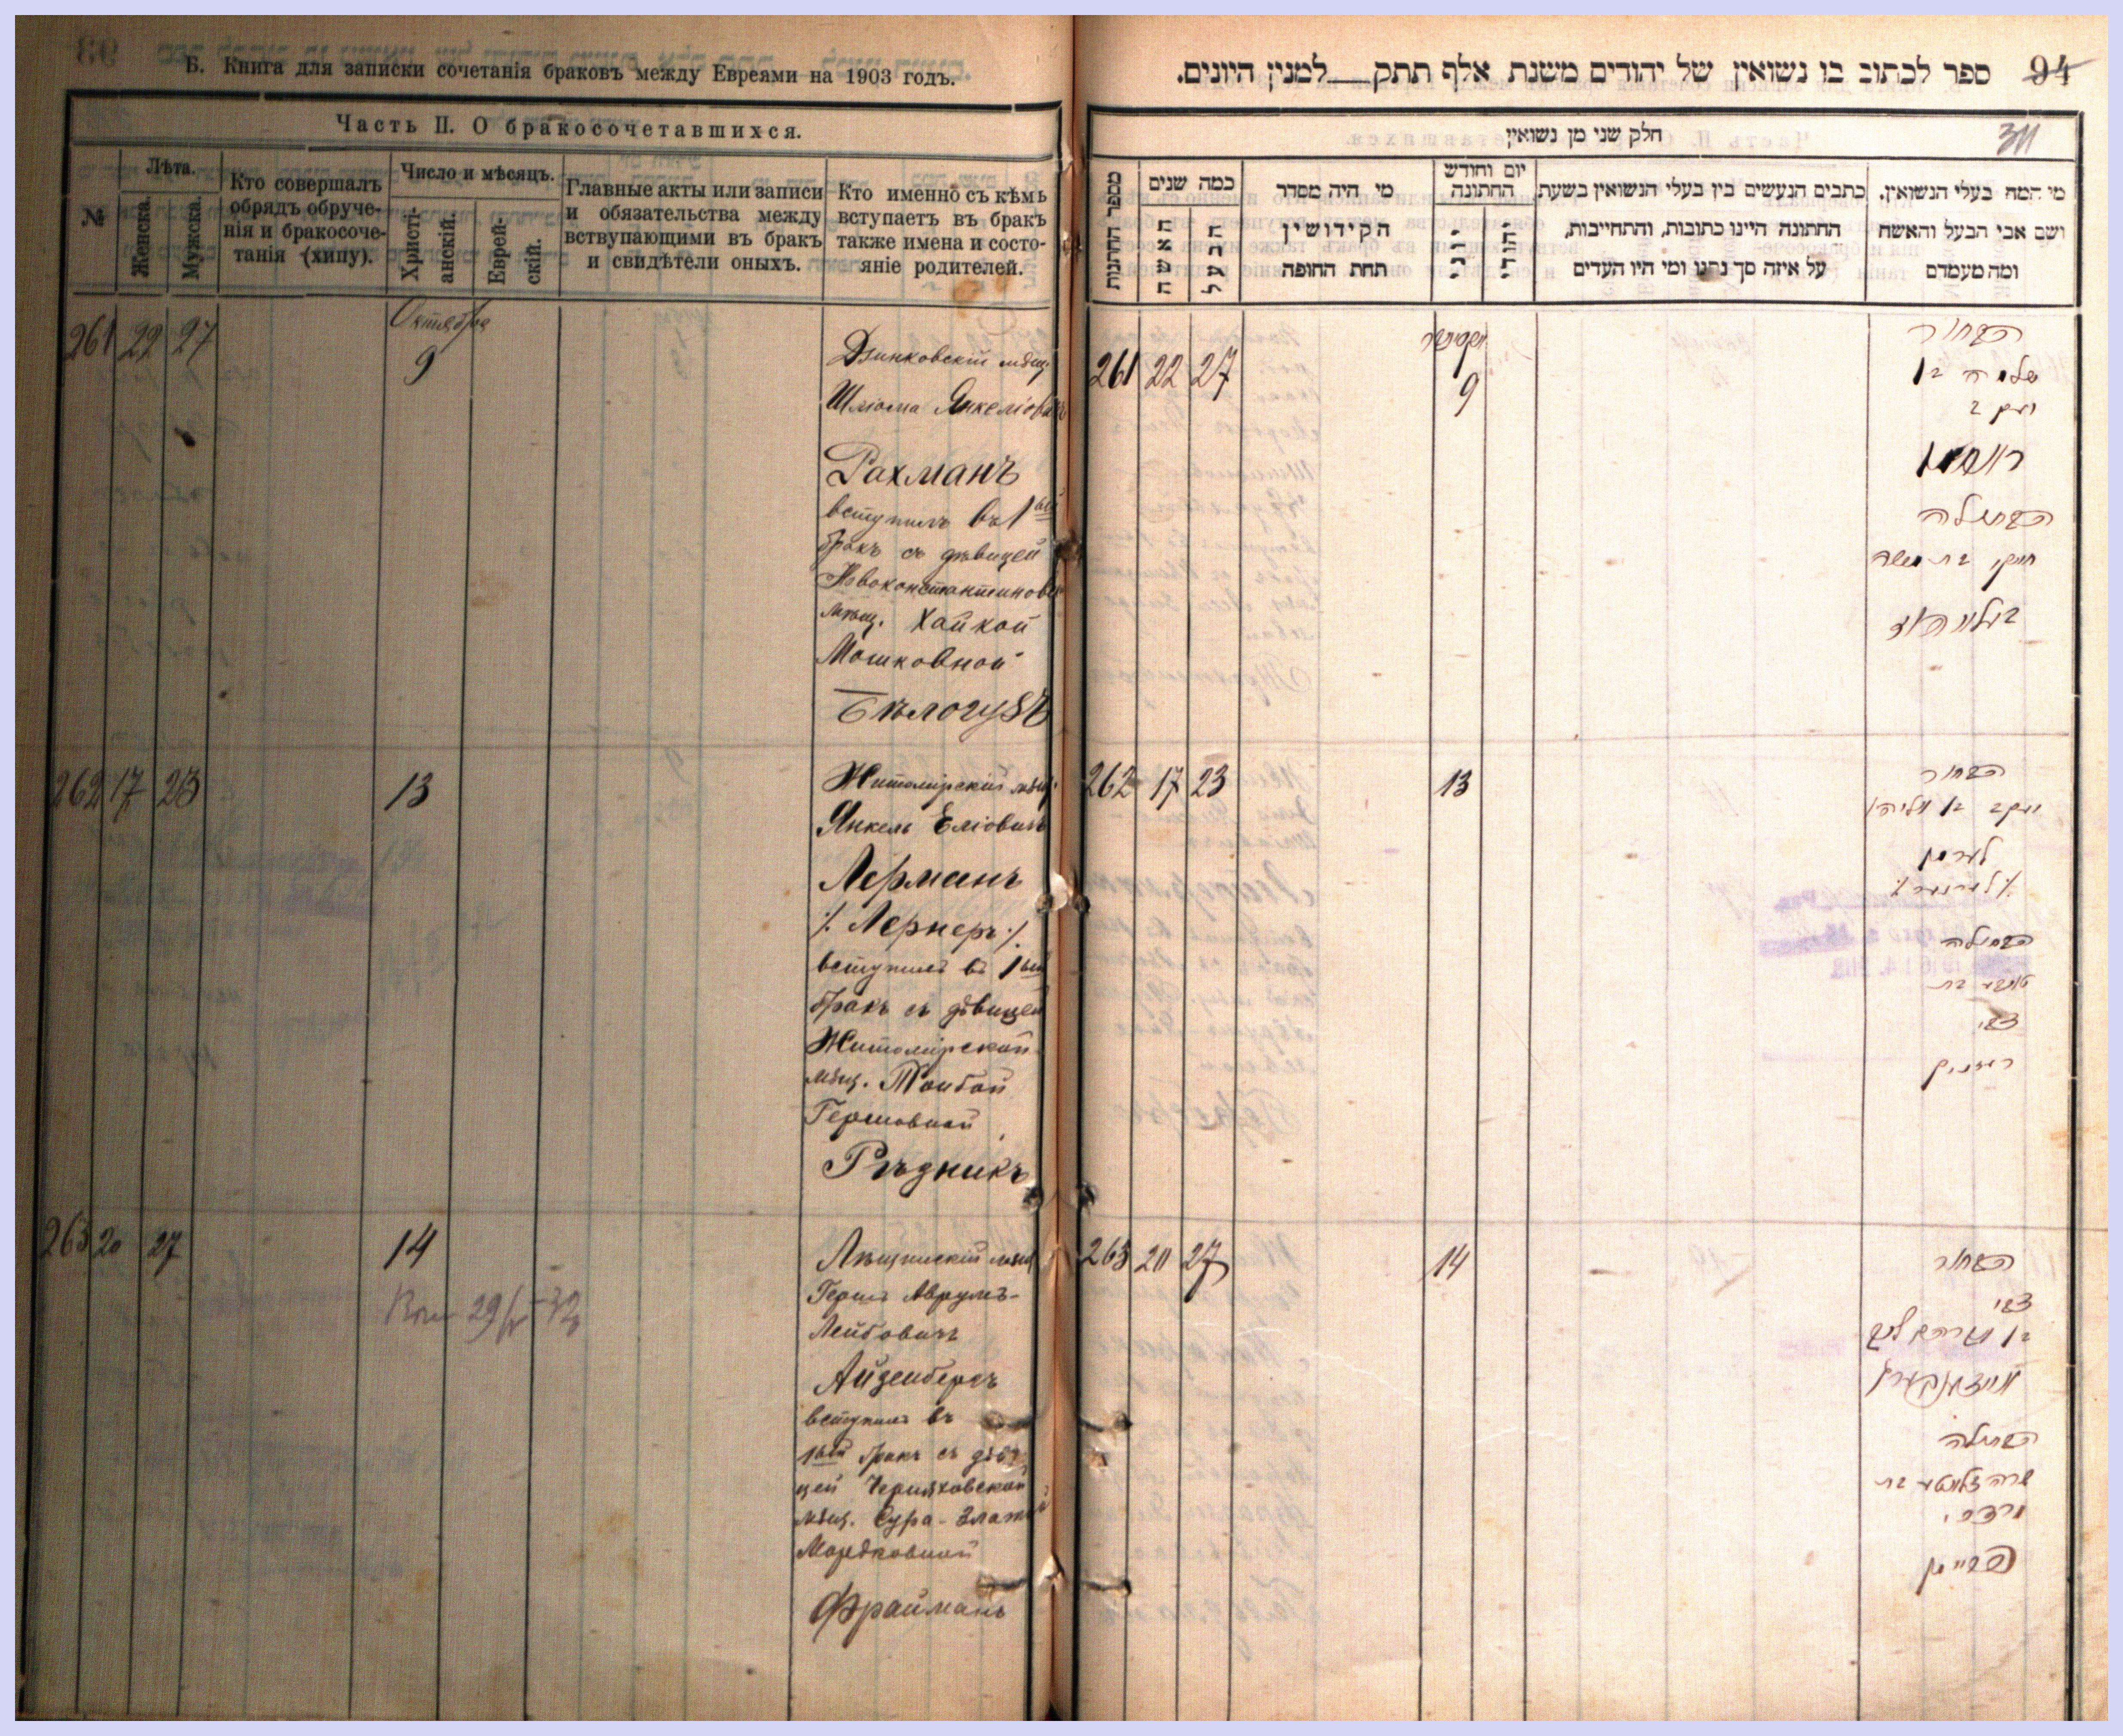 Б. Книга для записки сочетанія браковъ между Евреями на 1903 годъ.
Часть II. О бракосочетавшихся.
№
Лѣта.
Женска.
Мужска.
Кто совершалъ
обрядъ обруче-
нія и бракосоче-
танія (хипу).
Число и мѣсяцъ.
Христі-
анскій.
Еврей-
скій.
Главные акты или записи
и обязательства между
вствупающими въ бракъ
и свидѣтели оныхъ.
Кто именно съ кѣмъ
вступаетъ въ бракъ
также имена и состо-
яніе родителей.
261 22 27
Октября
9
мѣщ.
Шліома Янкеліовичъ
Рахманъ
вступилъ въ 1ый
бракъ съ дѣвицей
Новоконстантиновск
мѣщ. Хайкой
Мошковной
Бѣлогузъ
262 17 23
13
Житомірскій мѣщ.
Янкель Еліовичъ
Лерманъ
/. Лернеръ ./
вступилъ въ 1ый
бракъ съ дѣвицей
Житомірской
мѣщ. Тойбой
Гершовной
Рѣзникъ
263 20 27
14
мѣщ
Гершъ Аврумъ-
Лейбовичъ
Айзенбергъ
вступилъ въ
1ый бракъ съ дѣви
цей Черняховской
мѣщ. Сура-Златой
Мордковной
Фрайманъ
94 ספר לכתוב בו נשואין של יהודים משנת אלף תתק___למנין היונים.
311
חלק שני מן נשואין
מי המה בעלי הנשואין.
ושם אבי הבעל והאשה
ומה מעמדם
כתבים הנעשים בין בעלי הנשואין בשעת
החתונה היינו כתובות, והתחייבות,
על איזה סך נתנו ומי היו העדים
יום וחודש
החתונה
יהודי
יוני
מי היה מסדר
הקידושין
תחת החופה
כמה שנים
הבעל
האשה
מספר החתונות
261 22 27
אקטאבר
9
הבחור
שלמה בן
יעקב
ראחמאן
הבתולה
חייקי בת משה
262 17 23
13
הבחור
יעקב בן אליהו
לערמן
/. לערנער ./
הבתולה
טויבע בת
צבי
רעזניק
263 20 27
14
הבחור
צבי
בן אברהם ליב
אייזענבערג
הבתולה
שרה זלאטע בת
מרדכי
פריימן